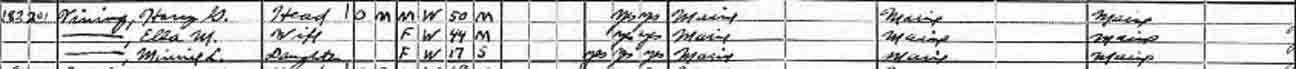 183 201 Vining, Harry G. Head O M M W 50 M yes yes Maine Maine Maine
——, Ella M. Wife F W 44 M yes yes Maine Maine Maine
——, Minnie L. Daughter F W 17 S yes yes yes Maine Maine Maine